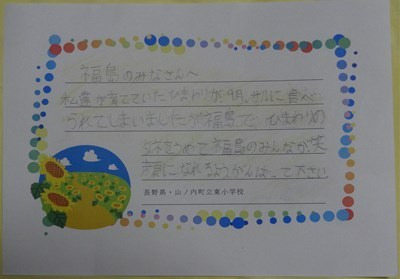 福島のみなさんへ
私達が育てていたひまわりが9月、サルに食べ
られてしまいましたが福島で ひまわりの
タネをうめて福島のみんなが笑
顔になれるようがんばって下さい
長野県・山ノ内町立東小学校